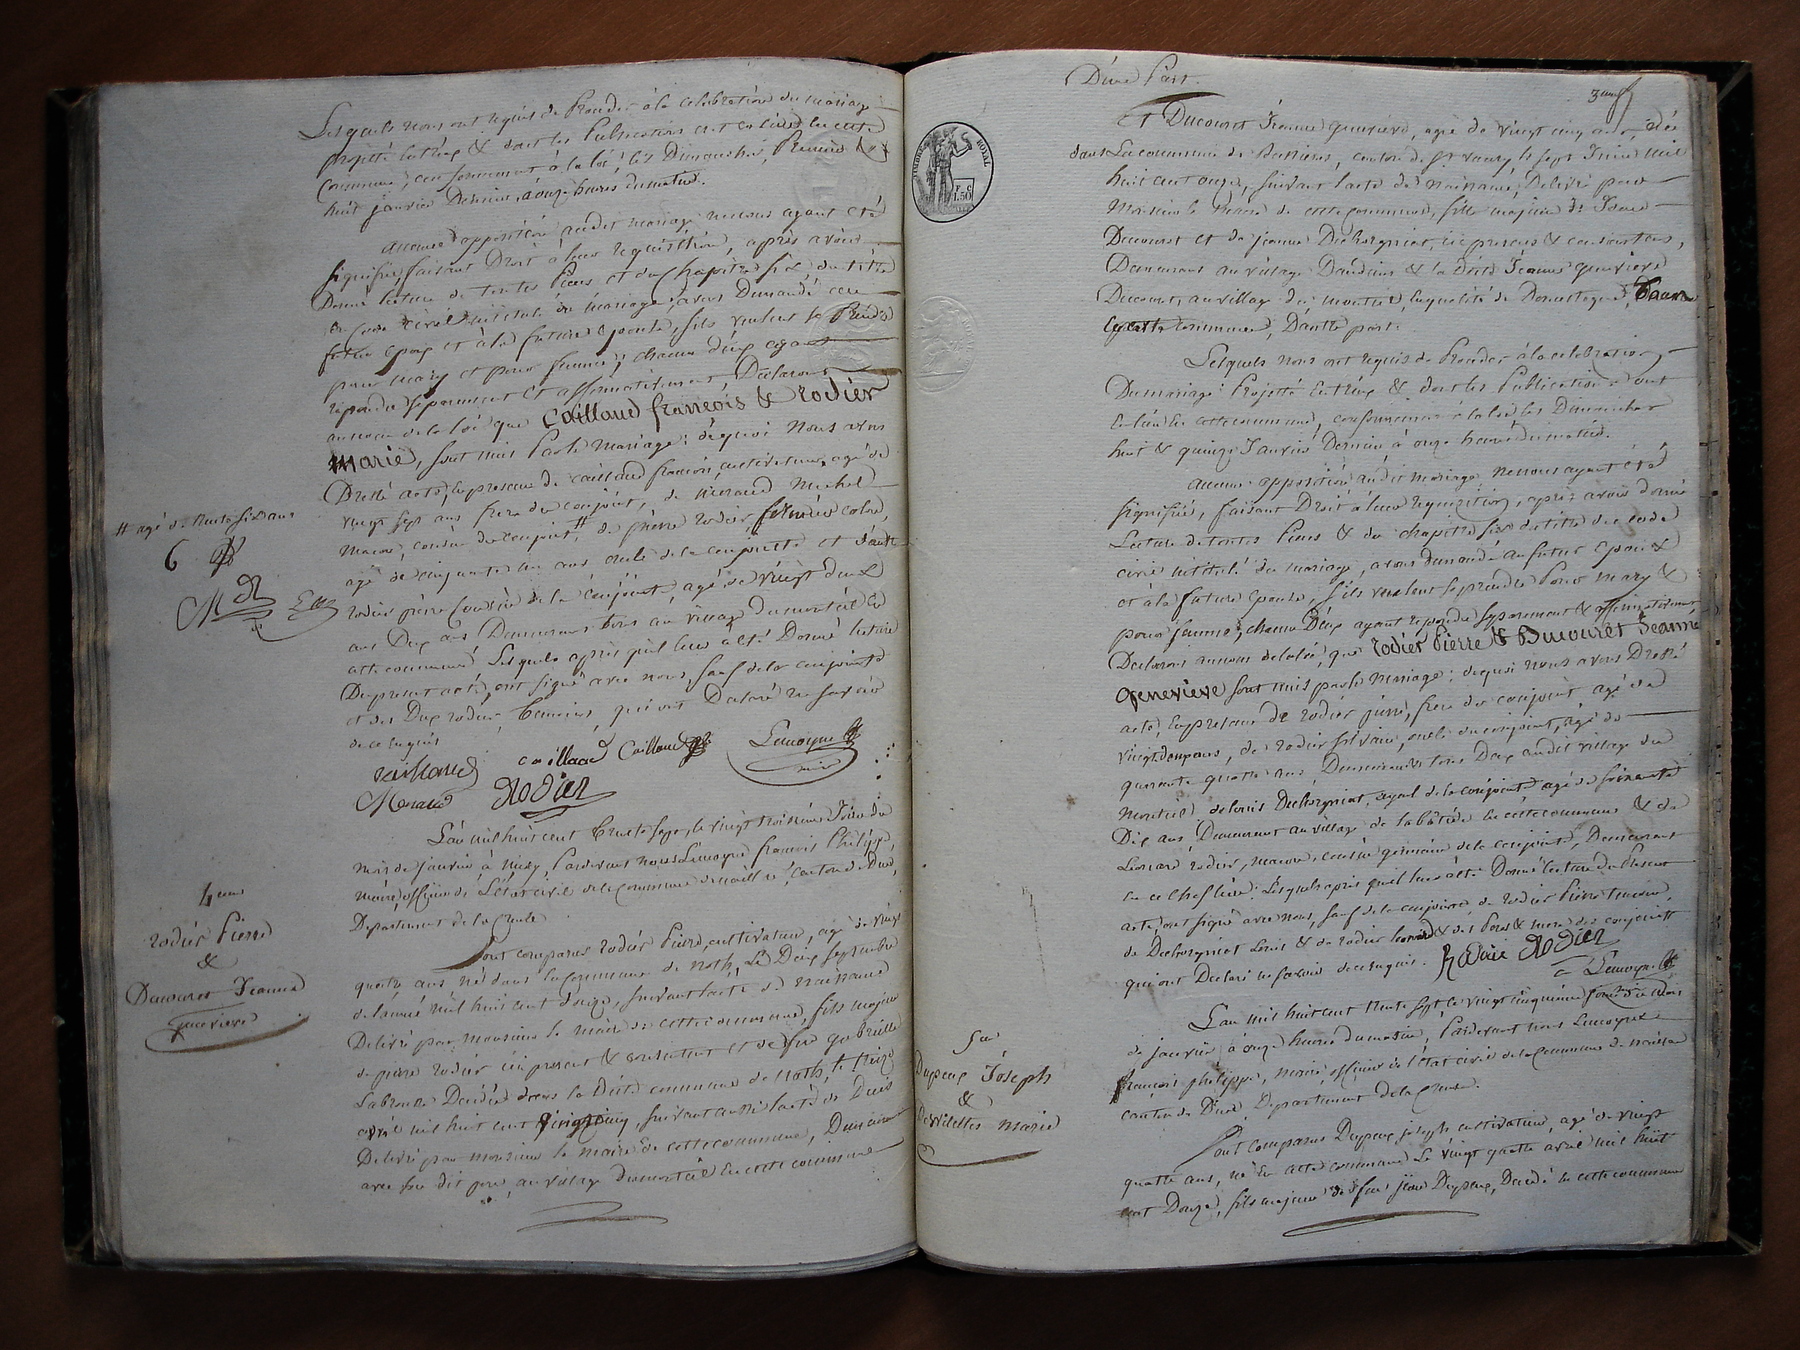 Lesquels nous ont requis de Proceder à la celebration du mariage
projetté entr'eux & dont les Publications ont eu lieu en cette
Commune, conformement à la loi, les Dimanches, Premier &
huit janvier Dernier, à onze heures du matin.
aucune opposition audit mariage ne nous ayant été
signifiée, faisant Droit à leur requisition, après avoir
Donné lecture de toutes Pieces et du Chapitre six, du titre
du Code Civil intitulé du mariage, avons Demandé au
futur epoux et à la future epouse, s'ils veulent se Prendre
pour mary et pour femme; chacun d'eux ayant
repondu separement et affirmativement, Declarons
au nom de la loi que Caillaud françois & rodier
marie, sont unis Par le mariage; de quoi nous avons
Dressé acte, en presence de Caillaud françois, cultivateur, agé de
vingt sept ans frere du conjoint, de Menaud Michel
macon, cousin du conjoint, # de pierre rodier
agé de cinquante un ans oncle de la conjointe et d'autre
rodier pierre cousin de la conjointe, agé de vingt deux
ans Demeurant tous au village du monteil en
cette commune, Lesquels après qu'il leur a été Donné lecture
Du present acte, ont signé avec nous, sauf de la conjointe
et des Deux rodier temoins, qui ont Declaré ne savoir
de ce enquis
# agé de trente six ans
6
MR
Caillaud caillaud Caillaud Lemoyne
Menaud Rodier maire
L'an mil huit cent trente sept, le vingt troisieme Jour du
mois de Janvier à midy, Pardevant nous Lemoyne françois Philippe,
maire, officier de L'état civil de la commune de Canton de Dun,
Departement de la Creuse
4eme
rodier Pierre
&
Ducouret Jeanne
genevieve
Sont comparus rodier Pierre, cultivateur, agé de vingt
quatre ans né dans la commune de Noth, Le Deux septembre
de l'année mil huit cent Douze, suivant l'acte de naissance
Delivré par monsieur le maire de cette commune, fils majeur
de pierre rodier ici present & consentant et de feue gabrielle
Labrousse Decedée dans la Dite commune de Noth, le treize
avril mil huit cent vingt cinq, suivant aussi l'acte de Décès
Delivré par monsieur le maire de cette commune, Demeurant
avec son dit pere, au village du monteil En cette commune
D'une Part.
3eme
Et Ducouret Jeanne genevieve, agée de vingt cinq ans, née
dans La commune de Bussieres, canton de St vaury, le sept Juin mil
huit cent onze, suivant l'acte de naissance, Delivré par
Monsieur le Maire de cette commune, fille majeure de
Ducouret et de jeanne Dechorgniat, ici presens & consentans,
Demeurant au village & la Dite Jeanne genevieve
Ducouret, au village du monteil, en qualité de Domestique, Dans
cette commune, D'autre part.
Lesquels nous ont requis de Proceder à la celebration
Du mariage Projetté Entr'eux & dont les Publications ont
eu lieu en cette commune, conformement à la loi les Dimanches
huit & quinze Janvier Dernier, à onze heures du matin.
aucune opposition audit mariage ne nous ayant été
signifiée, faisant Droit à leur requisition, après avoir donné
Lecture de toutes Pieces & du chapitre six du titre du code
civil intitulé du mariage, avons demandé au futur epoux &
et à la future epouse, s'ils veulent se prendre Pour mary &
pour femme; chacun D'eux ayant repondu separement & affirmativement,
Declarons au nom de la loi, que rodier Pierre & Ducouret Jeanne
Genevieve sont unis par le mariage; de quoi nous avons Dressé
acte, En presence de rodier pierre, frere du conjoint agé de
vingt deux ans, de rodier silvain, oncle du conjoint, agé de
quarante quatre ans, Demeurants tous Deux au dit village du
monteil, de Louis Dechorgniat, ayeul de la conjointe agé de soixante
Dix ans, Demeurant au village de la bâtide en cette commune & de
Leonard rodier, macon, cousin germain de la conjointe, Demeurant
en ce chef lieu: Lesquels après qu'il leur a été Donné lecture du Present
acte, ont signé avec nous, sauf de la conjointe, de rodier Pierre temoin,
de Dechorgniat Louis & de rodier leonard & des Peres & mere des conjoints
qui ont Declaré ne savoir de ce enquis. Rodier Rodier
Lemoyne
L'an mil huit cent trente sept Le vingt cinquieme jour du mois
de janvier à onze heures du matin, Pardevant nous Lemoyne
françois philippe, maire, officier de l'état civil de la commune de
canton de Dun, Departement de la Creuse.
5eme
Dupeux Joseph
&
Devillettes marie
Sont comparus Dupeux joseph cultivateur, agé de vingt
quatre ans, né En cette commune Le vingt quatre avril mil huit
cent Douze, fils majeur de feu jean Dupeux, Decedé En cette commune
TIMBRE ROYAL
F. C
1.50